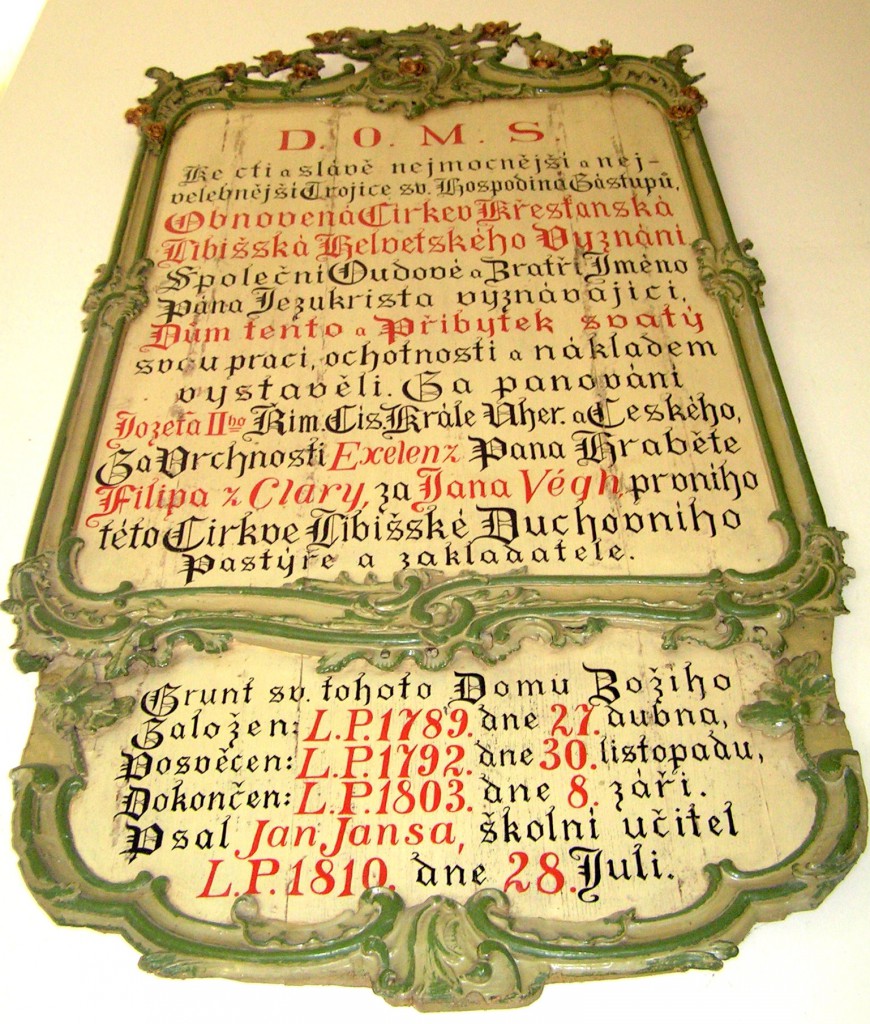 D. O. M. S.
Ke cti a slávě nejmocnější a nej-
velebnější Trojice sv. Hospodina Zástupů,
Obnovená Cirkev Křesťanská
Libišská Helvetského Vyznáni
Společni Oudové a Bratři Jméno
Pána Jezukrista vyznávajici,
Dům tento a Přibytek svatý
svou praci, ochotnosti a nákladem
vystavěli. Za panováni
Jozefa II ho Řim. Cis. Krále Uher. a Ceského,
Za Vrchnosti Exelenz Pana Hraběte
Filipa z Clary, za Jana Végh prvniho
této Cirkve Libišské Duchovniho
Pastýře a zakladatele.
Grunt sv. tohoto Domu Božiho
Založen: L.P. 1789. dne 27. dubna,
Posvěcen: L.P. 1792. dne 30. listopadu,
Dokončen: L.P. 1803. dne 8. záři.
Psal Jan Jansa, školni učitel
L.P. 1810. dne 28. Juli.